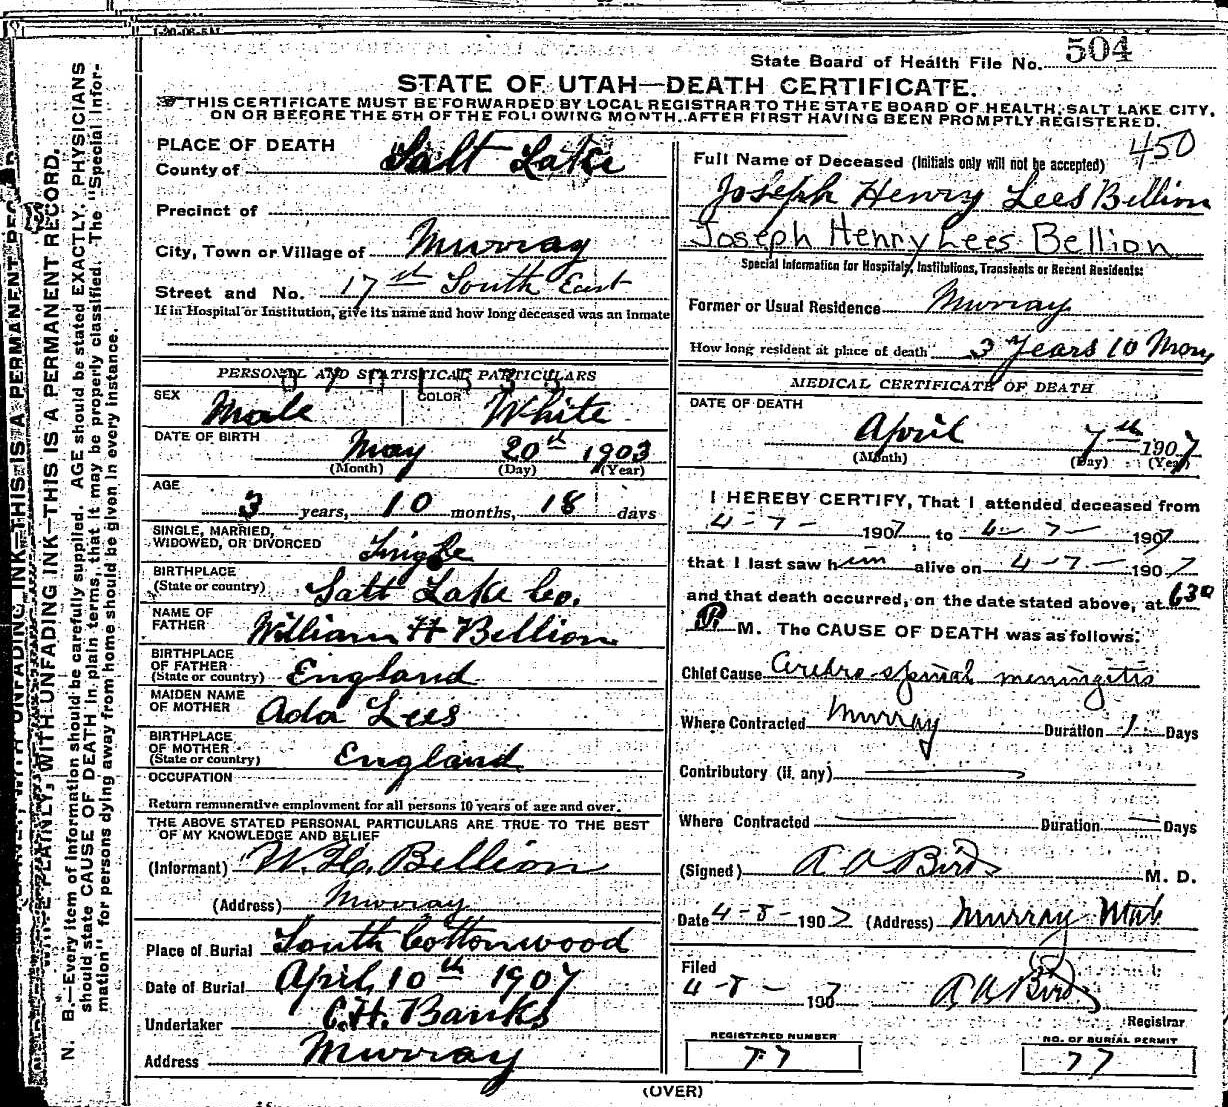 State Board of Health File No. 504
STATE OF UTAH—DEATH CERTIFICATE.
THIS CERTIFICATE MUST BE FORWARDED BY LOCAL REGISTRAR TO THE STATE BOARD OF HEALTH, SALT LAKE CITY,
ON OR BEFORE THE 5TH OF THE FOLLOWING MONTH, AFTER FIRST HAVING BEEN PROMPTLY REGISTERED.
N. B.—Every item of information should be carefully supplied. AGE should be stated EXACTLY. PHYSICIANS
should state CAUSE OF DEATH in plain terms, that it may be properly classified. The "Special Infor-
mation" for persons dying away from home should be given in every instance.
WRITE PLAINLY, WITH UNFADING INK—THIS IS A PERMANENT RECORD.
PLACE OF DEATH
County of Salt Lake
Precinct of
City, Town or Village of Murray
Street and No. 17th South East
If in Hospital or Institution, give its name and how long deceased was an inmate
PERSONAL AND STATISTICAL PARTICULARS
SEX Male COLOR White
DATE OF BIRTH May 20th 1903
(Month) (Day) (Year)
AGE
3 years, 10 months, 18 days
SINGLE, MARRIED,
WIDOWED, OR DIVORCED Single
BIRTHPLACE
(State or country) Salt Lake Co.
NAME OF
FATHER William H Bellion
BIRTHPLACE
OF FATHER
(State or country) England
MAIDEN NAME
OF MOTHER Ada Lees
BIRTHPLACE
OF MOTHER
(State or country) England
OCCUPATION
Return remunerative employment for all persons 10 years of age and over.
THE ABOVE STATED PERSONAL PARTICULARS ARE TRUE TO THE BEST
OF MY KNOWLEDGE AND BELIEF
(Informant) W. H. Bellion
(Address) Murray
Place of Burial South Cottonwood
Date of Burial April 10th 1907
Undertaker C.H. Banks
Address Murray
450
Full Name of Deceased (Initials only will not be accepted)
Joseph Henry Lees Bellion
Joseph Henry Lees Bellion
Special Information for Hospitals, Institutions, Transients or Recent Residents:
Former or Usual Residence Murray
How long resident at place of death 3 Years 10 Mons
MEDICAL CERTIFICATE OF DEATH
DATE OF DEATH
April 7th 1907
(Month) (Day) (Year)
I HEREBY CERTIFY, That I attended deceased from
4-7- 1907 to 4-7- 1907
that I last saw him alive on 4-7- 1907
and that death occurred, on the date stated above, at 630
P. M. The CAUSE OF DEATH was as follows:
Chief Cause Cerebro-spinal meningitis
Where Contracted Murray Duration 1 Days
Contributory (if any)
Where Contracted Duration Days
(Signed) A A Bird M. D.
Date 4-8-1907 (Address) Murray Utah
Filed
4-8-1907 A A Bird
Registrar
REGISTERED NUMBER
77
NO. OF BURIAL PERMIT
77
(OVER)